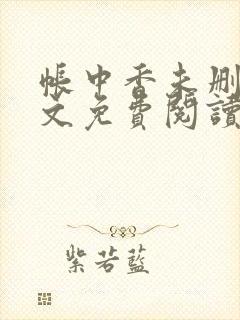 帳中香未刪
文免費閱讀
紫若藍